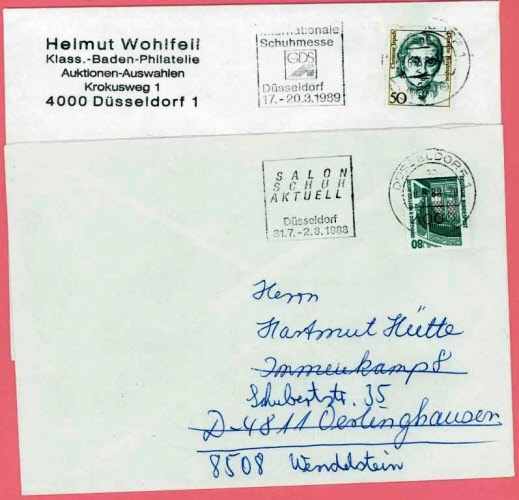 Helmut Wohlfeil
Klass.-Baden-Philatelie
Auktionen-Auswahlen
Krokusweg 1
4000 Düsseldorf 1
Internationale
Schuhmesse
GDS
Düsseldorf
17.-20.3.1989
50
1
SALON
SCHUH
AKTUELL
Düsseldorf
31.7.-2.8.1988
DÜSSELDORF 1
80
Herrn
Hartmut Hütte
Immenkamp 8
Schubertstr. 35
D-4811 Oerlinghausen
8508 Wendelstein